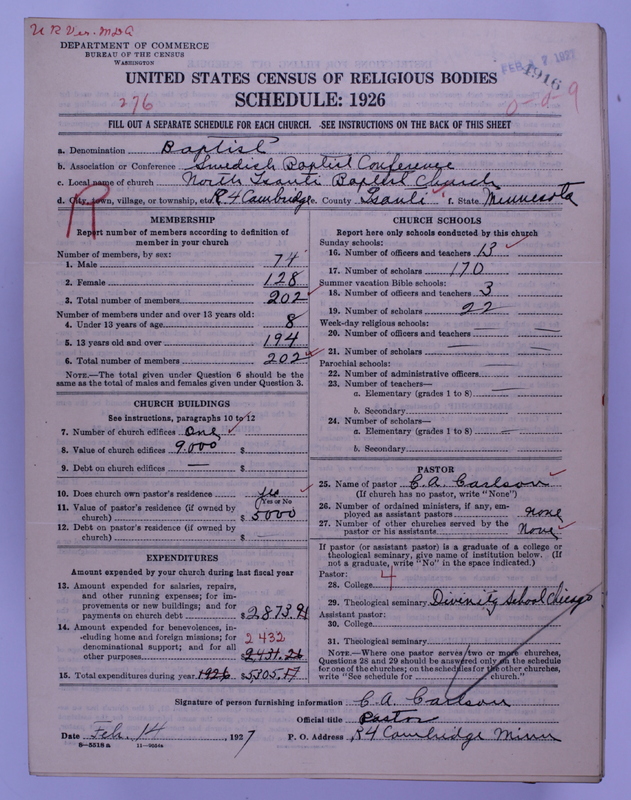 U R Ver. M.D.G
DEPARTMENT OF COMMERCE
BUREAU OF THE CENSUS
WASHINGTON
FEB 1927
1916
UNITED STATES CENSUS OF RELIGIOUS BODIES
SCHEDULE: 1926
276
0-d-9
FILL OUT A SEPARATE SCHEDULE FOR EACH CHURCH. SEE INSTRUCTIONS ON THE BACK OF THIS SHEET
a. Denomination Baptist
b. Association or Conference Swedish Baptist Conference
c. Local name of church North Isanti Baptist Church
d. City, town, village, or township, etc. R4 Cambridge e. County Isanti f. State Minnesota
R
MEMBERSHIP
Report number of members according to definition of member in your church
Number of members, by sex:
1. Male 74
2. Female 128
3. Total number of members 202
Number of members under and over 13 years old:
4. Under 13 years of age 8
5. 13 years old and over 194
6. Total number of members 202
NOTE.—The total given under Question 6 should be the same as the total of males and females given under Question 3.
CHURCH BUILDINGS
See instructions, paragraphs 10 to 12
7. Number of church edifices One
8. Value of church edifices 9.000 $
9. Debt on church edifices — $
10. Does church own pastor's residence yes
Yes or No
11. Value of pastor's residence (if owned by church) $ 5000
12. Debt on pastor's residence (if owned by church) $
EXPENDITURES
Amount expended by your church during last fiscal year
13. Amount expended for salaries, repairs, and other running expenses; for improvements or new buildings; and for payments on church debt $2873.91
14. Amount expended for benevolences, including home and foreign missions; for denominational support; and for all other purposes 2432 2431.26
15. Total expenditures during year 1926 $5305.17
CHURCH SCHOOLS
Report here only schools conducted by this church
Sunday schools:
16. Number of officers and teachers 13
17. Number of scholars 170
Summer vacation Bible schools:
18. Number of officers and teachers 3
19. Number of scholars 22
Week-day religious schools:
20. Number of officers and teachers —
21. Number of scholars —
Parochial schools:
22. Number of administrative officers —
23. Number of teachers—
a. Elementary (grades 1 to 8) —
b. Secondary
24. Number of scholars—
a. Elementary (grades 1 to 8) —
b. Secondary
PASTOR
25. Name of pastor C.A. Carlson
(If church has no pastor, write "None")
26. Number of ordained ministers, if any, employed as assistant pastors none
27. Number of other churches served by the pastor or his assistants None
If pastor (or assistant pastor) is a graduate of a college or theological seminary, give name of institution below. (If not a graduate, write "No" in the space indicated.)
Pastor: 4
28. College
29. Theological seminary Divinity School Chicago
Assistant pastor:
30. College
31. Theological seminary
NOTE.—Where one pastor serves two or more churches, Questions 28 and 29 should be answered only on the schedule for one of the churches; on the schedules for the other churches, write "See schedule for church."
Signature of person furnishing information C.A. Carlson
Official title Pastor
Date Feb. 14, 1927 P. O. Address R4 Cambridge Minn
8-5518a 11-9034a